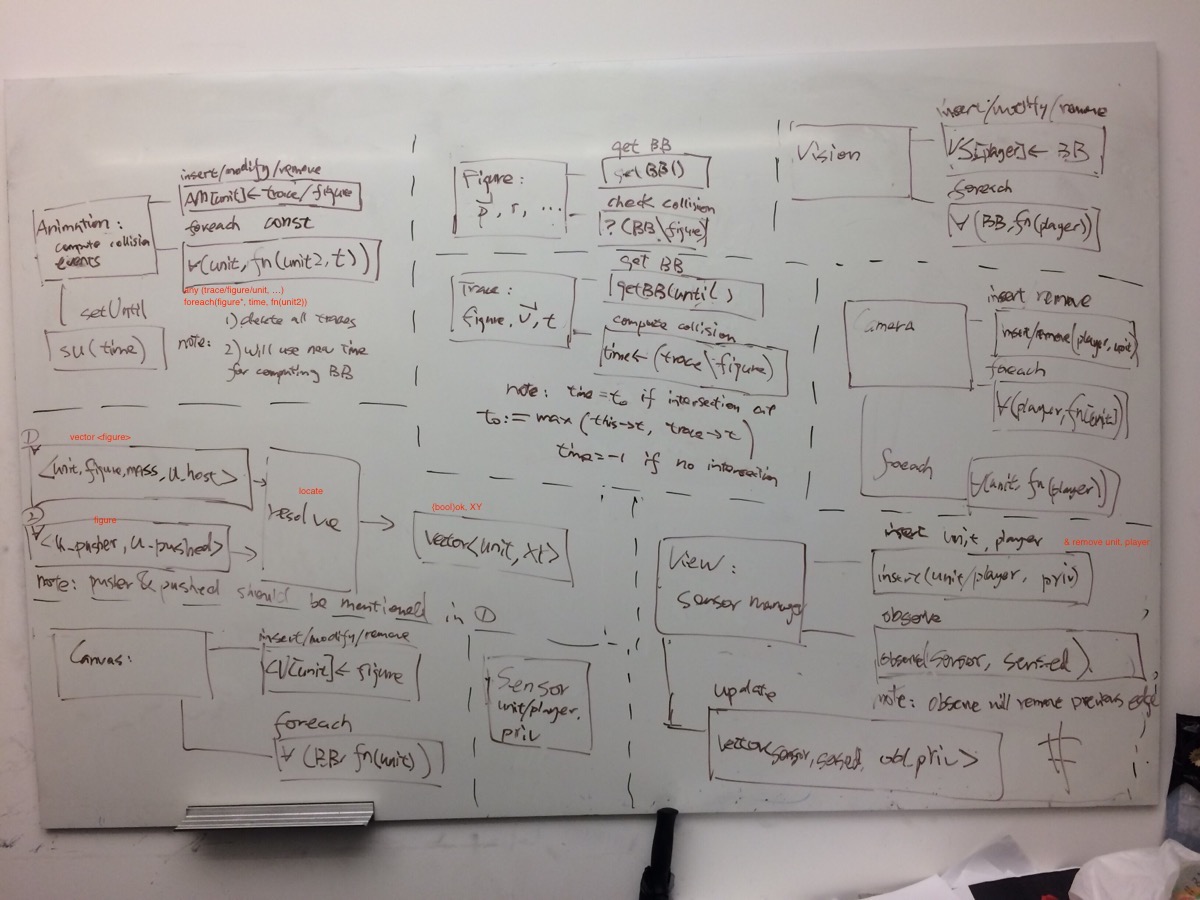 Animation:
compute collision
events
insert/modify/remove
AM[unit]←trace/figure
foreach const
∀(unit, fn(unit2, t))
any (trace/figure/unit, ...)
foreach(figure*, time, fn(unit2))
setUntil
su(time)
note:
1) delete all traces
2) will use new time
for computing BB
Figure:
p, r, ...
get BB
getBB()
check collision
?(BB\figure)
Trace:
figure, v, t
get BB
getBB(until)
compute collision
time←(trace\figure)
note: time=t₀ if intersection at
t₀:=max(this→t, trace→t)
time=-1 if no intersection
Vision
insert/modify/remove
VS[player]←BB
foreach
∀(BB, fn(player))
Camera
insert remove
insert/remove(player, unit)
foreach
∀(player, fn[unit])
foreach
∀(unit, fn(player))
①
vector <figure>
<unit, figure, mass, u_host>
②
figure
<u_pusher, u_pushed>
locate
resolve
(bool)ok, XY
vector<unit, XY>
note: pusher & pushed should be mentioned in ①
Canvas:
insert/modify/remove
CV[unit]←figure
foreach
∀(BB, fn(unit))
Sensor
unit/player,
priv
View:
sensor manager
insert unit, player
& remove unit, player
insert(unit/player, priv)
observe
observe(sensor, sensed)
note: observe will remove previous edge
update
vector<sensor, sensed, old priv>
#